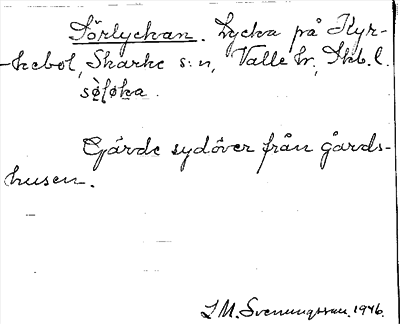 Sörlyckan. Lycka på Kyr-
-kebol, Skarke s:n, Valle hr, Skb. l.
sø̀ļøka.
Gärde sydöver från gårds-
husen.
I. M. Svenungsson. 1946.